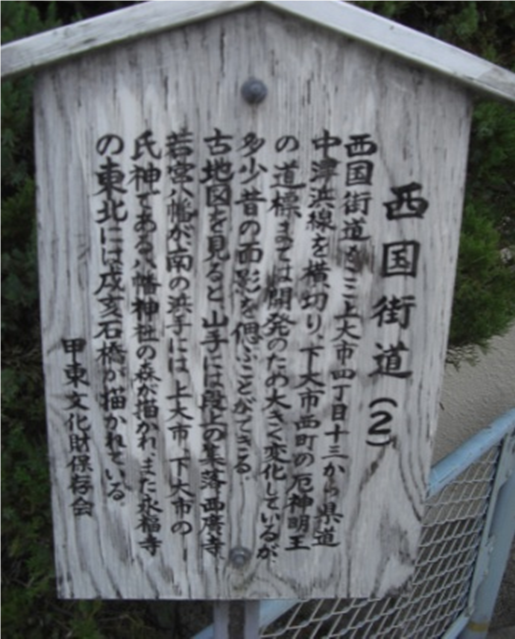 西国街道(2)
西国街道をここ上大市四丁目十三から県道
中津浜線を横切り、下大市西町の厄神明王
の道標までは開発のため大きく変化しているが、
多少昔の面影を偲ぶことができる。
古地図を見ると、山手には段上の集落、西廣寺、
若宮八幡が、南の浜手には、上大市、下大市の
氏神である八幡神社の森が描かれ、また永福寺
の東北には戌亥石橋が描かれている。
甲東文化財保存会